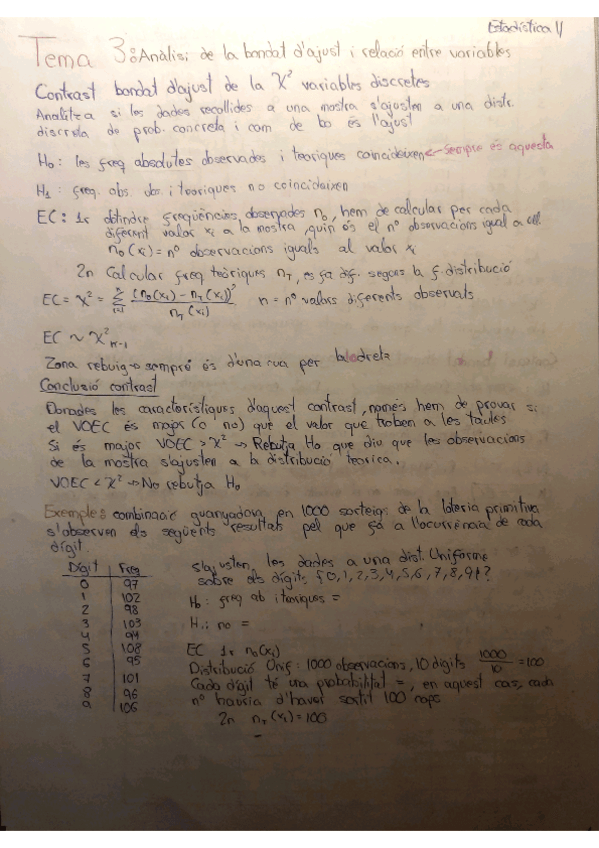 Estadística II
Tema 3: Anàlisi de la bondat d'ajust i relació entre variables
Contrast bondat d'ajust de la X² variables discretes
Analitza si les dades recollides a una mostra s'ajusten a una distr.
discreta de prob. concreta i com de bo és l'ajust
H₀: les freq absolutes observades i teòriques coincideixen ← sempre és aquesta
H₁: freq. abs. obs. i teòriques no coincideixen
EC: 1r obtindre freqüències observades n₀, hem de calcular per cada
diferent valor xᵢ a la mostra, quin és el nº observacions igual a ell.
n₀(xᵢ) = nº observacions iguals al valor xᵢ
2n Calcular freq teòriques n_T, es fa dif. segons la f. distribució
EC = X² = Σ (n₀(xᵢ) - n_T(xᵢ))² / n_T(xᵢ) n = nº valors diferents observats
EC ~ X²ₙ₋₁
Zona rebuig → sempre és d'una cua per la dreta
Conclusió contrast
Donades les característiques d'aquest contrast, només hem de provar si
el VOEC és major (o no) que el valor que troben a les taules
Si és major VOEC > X² → Rebutja H₀ que diu que les observacions
de la mostra s'ajusten a la distribució teòrica.
VOEC < X² → No rebutja H₀
Exemple: combinació guanyadora en 1000 sorteigs de la loteria primitiva
s'observen els següents resultats pel que fa a l'ocurrència de cada
dígit.
Dígit Freq
0 97
1 102
2 98
3 103
4 94
5 108
6 95
7 101
8 96
9 106
s'ajusten les dades a una dist. Uniforme
sobre els dígits {0,1,2,3,4,5,6,7,8,9}?
H₀: freq ab i teòriques =
H₁: no =
EC 1r n₀(xᵢ)
Distribució Unif: 1000 observacions, 10 dígits 1000/10 = 100
Cada dígit té una probabilitat =, en aquest cas, cada
nº hauria d'haver sortit 100 cops
2n n_T(xᵢ) = 100